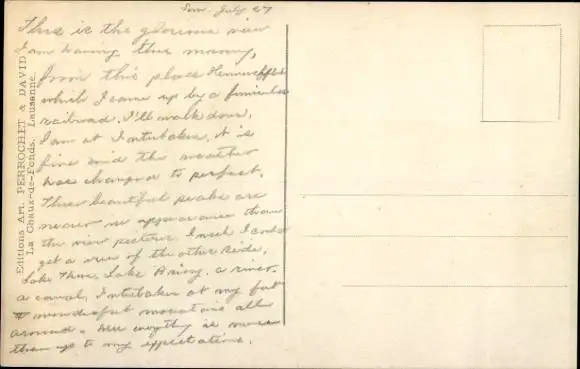 Sun. July 27
This is the glorious view
I am having this morning,
from this place
which I came up by a funicular
railroad. I'll walk down.
I am at Interlaken. It is
fine and the weather
has changed to perfect.
These beautiful peaks are
nearer in appearance than
the view pictures. I wish I could
get a view of the other side,
Lake Thun, Lake Brienz, a river,
a canal, Interlaken at my feet
& wonderful mountains all
around. Here everything is more
than up to my expectations.
Editions Art. PERROCHET & DAVID
La Chaux-de-Fonds, Lausanne